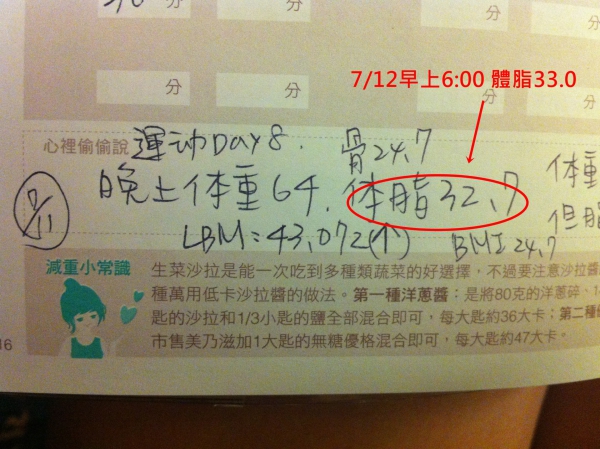 分
分
分
分
分
分
7/12早上6:00 體脂33.0
心裡偷偷說
運动DAY8.
骨24.7
7/11
晚上体重64.体脂32.7
体重
但脂
LBM:43.072(个)
BMI 24.7
減重小常識
生菜沙拉是能一次吃到多種類蔬菜的好選擇,不過要注意沙拉醬
種萬用低卡沙拉醬的做法。第一種洋蔥醬:是將80克的洋蔥碎、1
匙的沙拉和1/3小匙的鹽全部混合即可,每大匙約36大卡;第二種
市售美乃滋加1大匙的無糖優格混合即可,每大匙約47大卡。
16